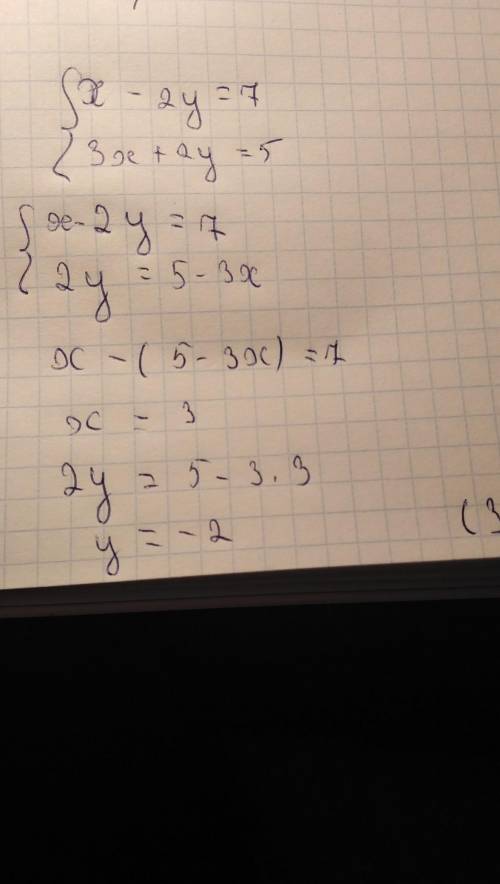 { x - 2y = 7
{ 3x + 2y = 5
{ x - 2y = 7
{ 2y = 5 - 3x
x - ( 5 - 3x) = 7
x = 3
2y = 5 - 3 . 3
y = -2
(3